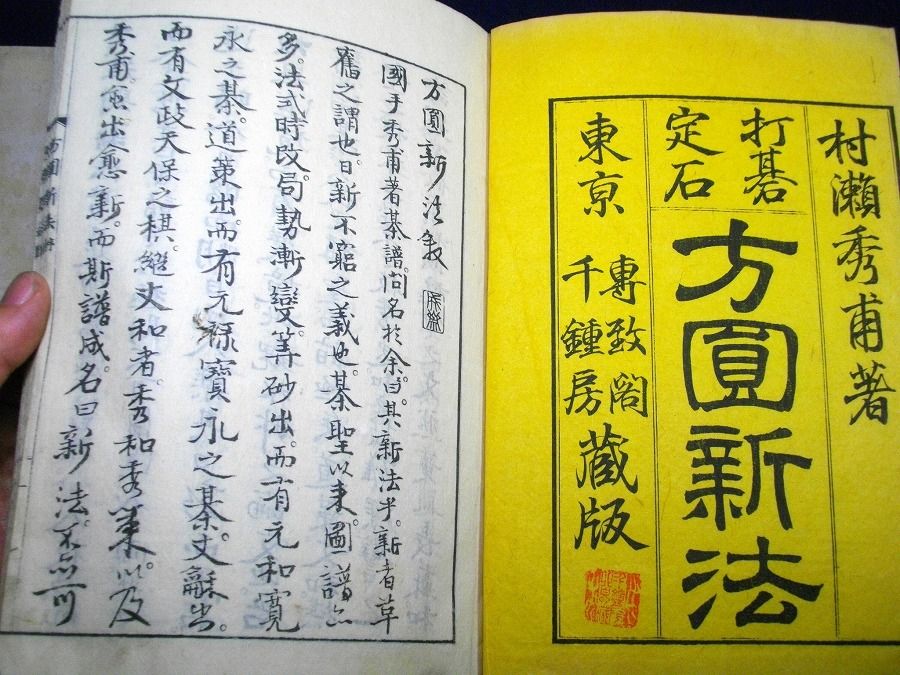 村瀬秀甫著
打碁
定石
方圓新法
東京
専致閣
千鍾房
蔵版
方圓新法敘
國手秀甫著碁譜。問名於余。曰。其新法乎。新者革
舊之謂也。日新不窮之義也。碁聖以来。圖譜亦
多。法式時改。局勢漸變。算砂出。而有元和寛
永之碁。道策出。而有元禄寶永之碁。丈龢出。
而有文政天保之棋。繼丈和者。秀和秀策。以及
秀甫愈出愈新。而斯譜成。名曰新法。不亦可